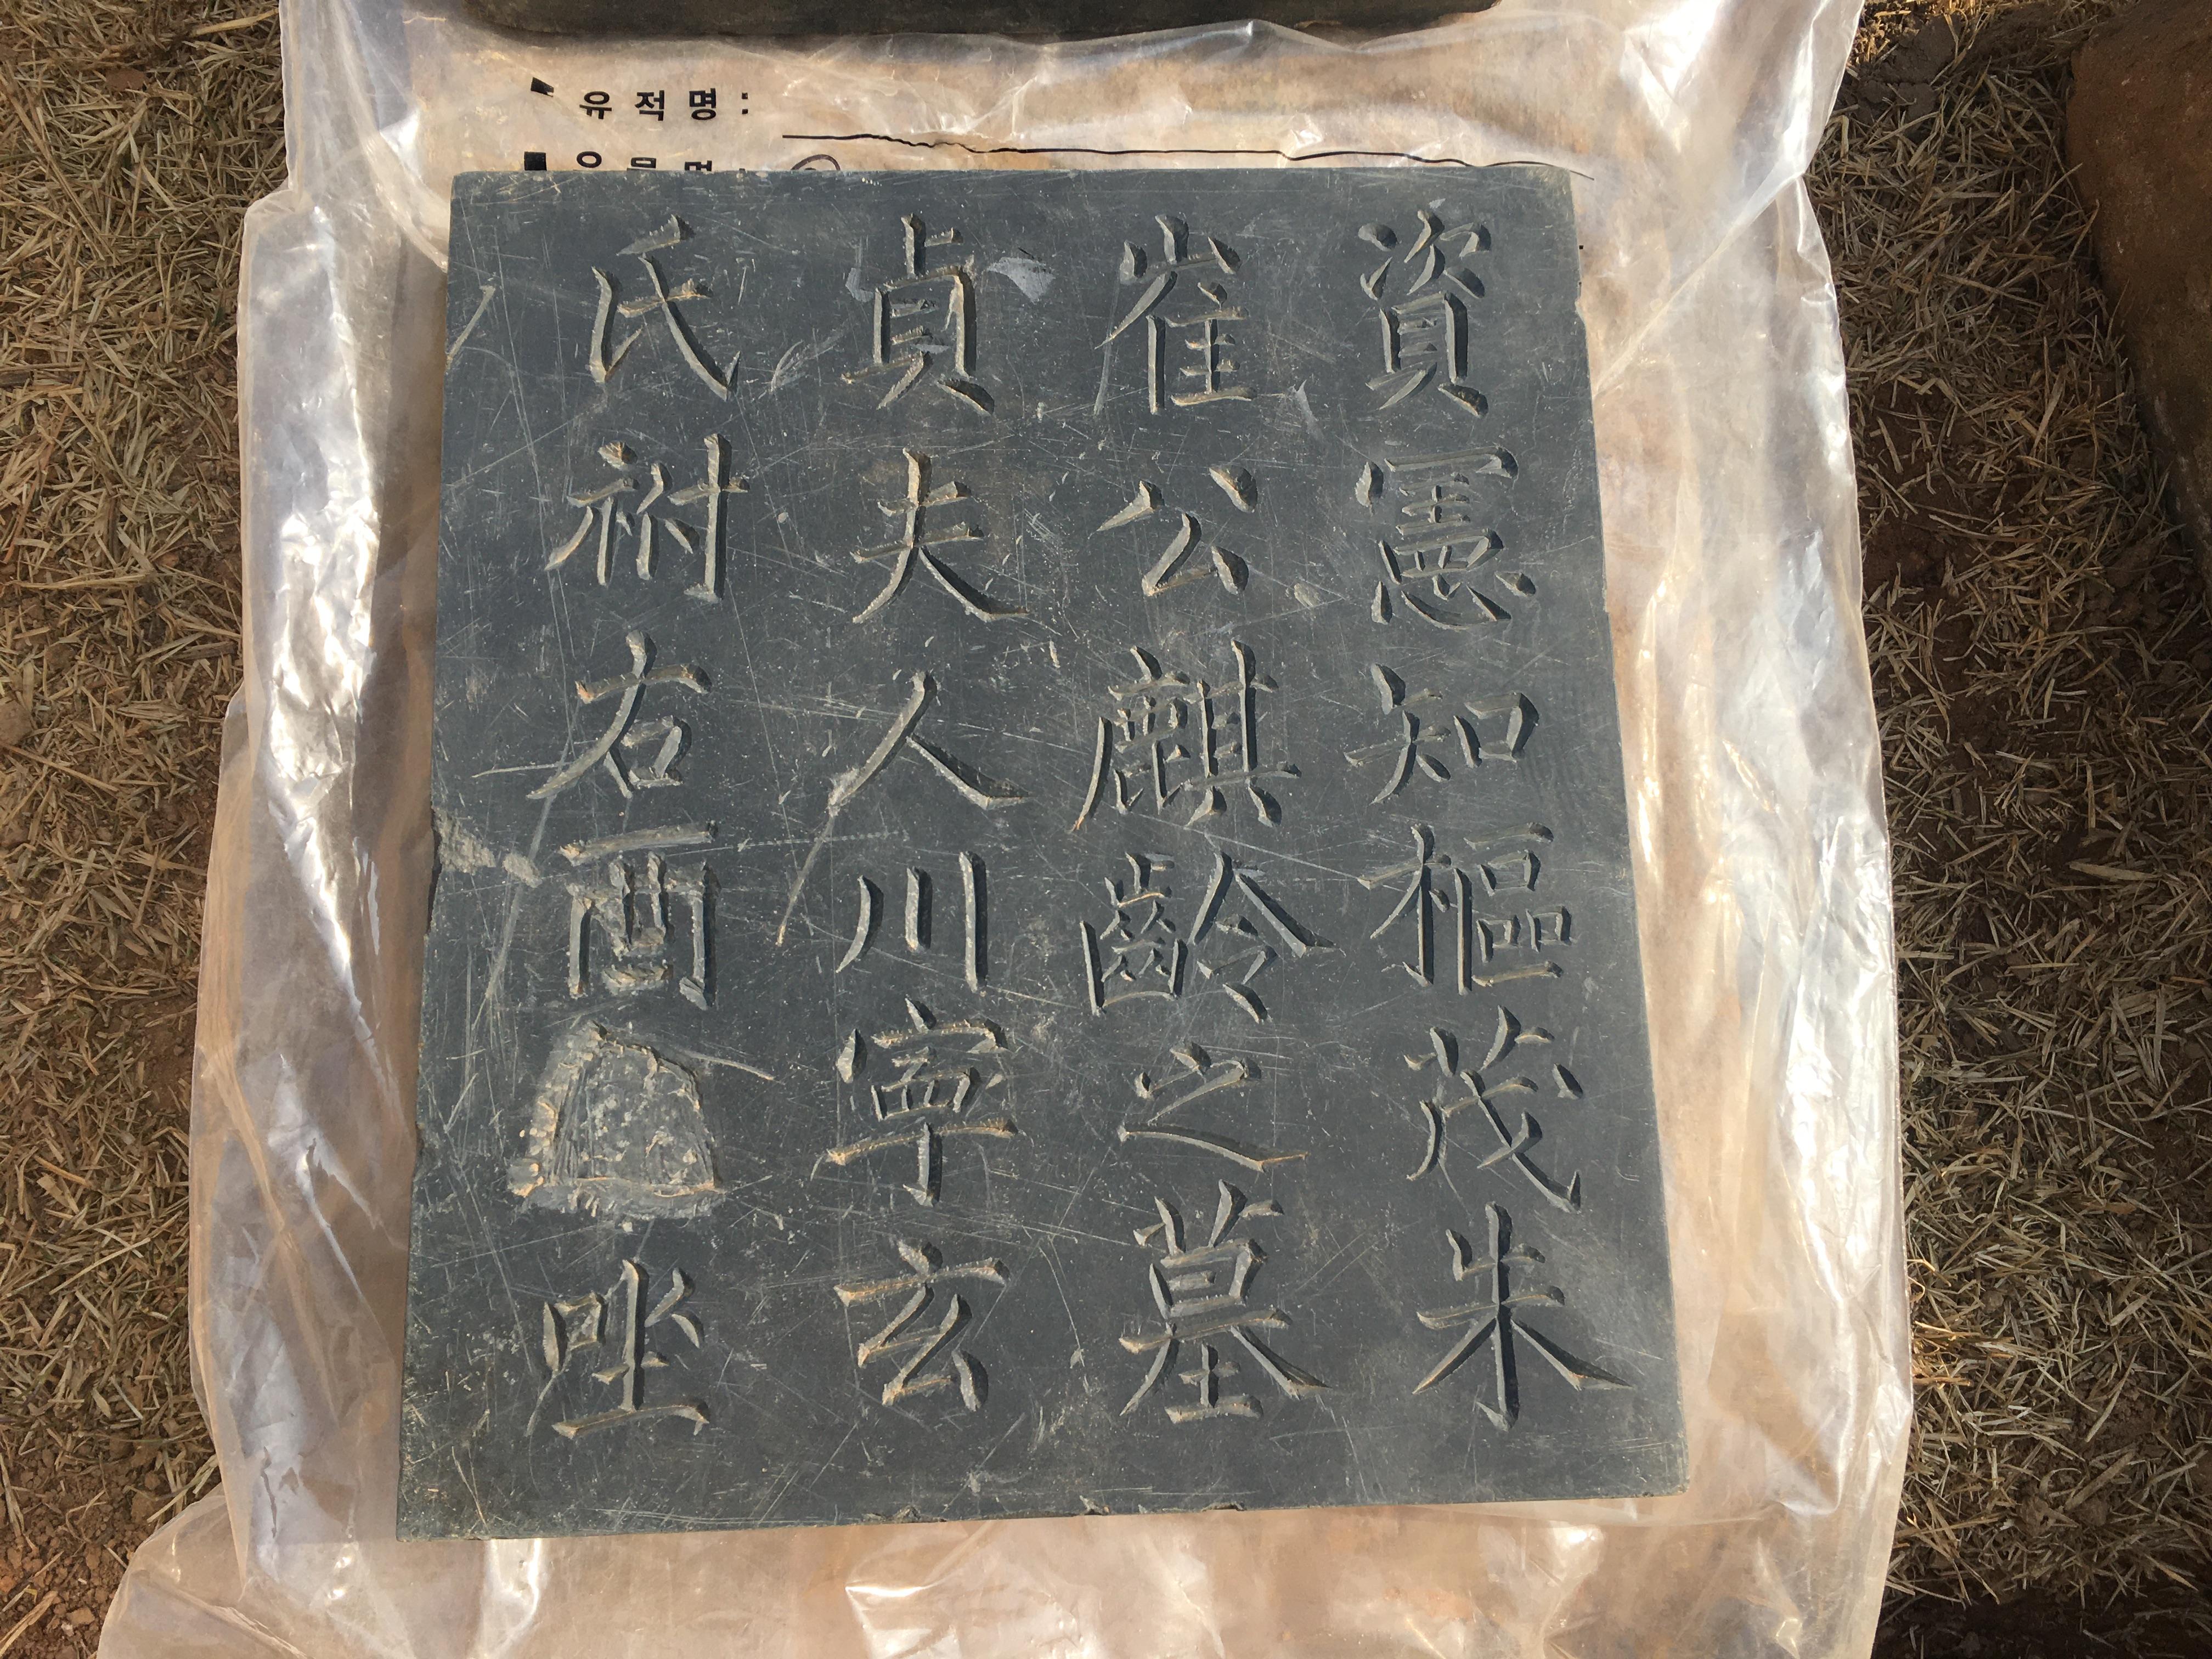 유적명 :
資憲知樞茂朱
崔公麒齡之墓
貞夫人川寧玄
氏祔右酉坐